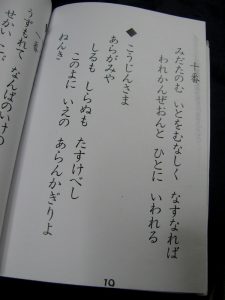 十番
みだたのむ いとをむなしく なすなれば
われかんぜおんと ひとに いわれる
◆
こうじんさま
あらがみや
しるも しらぬも たすけべし
このまに いえの あらんかぎりよ
ねんき
なんばのいけの
うずもれて
せかい
10